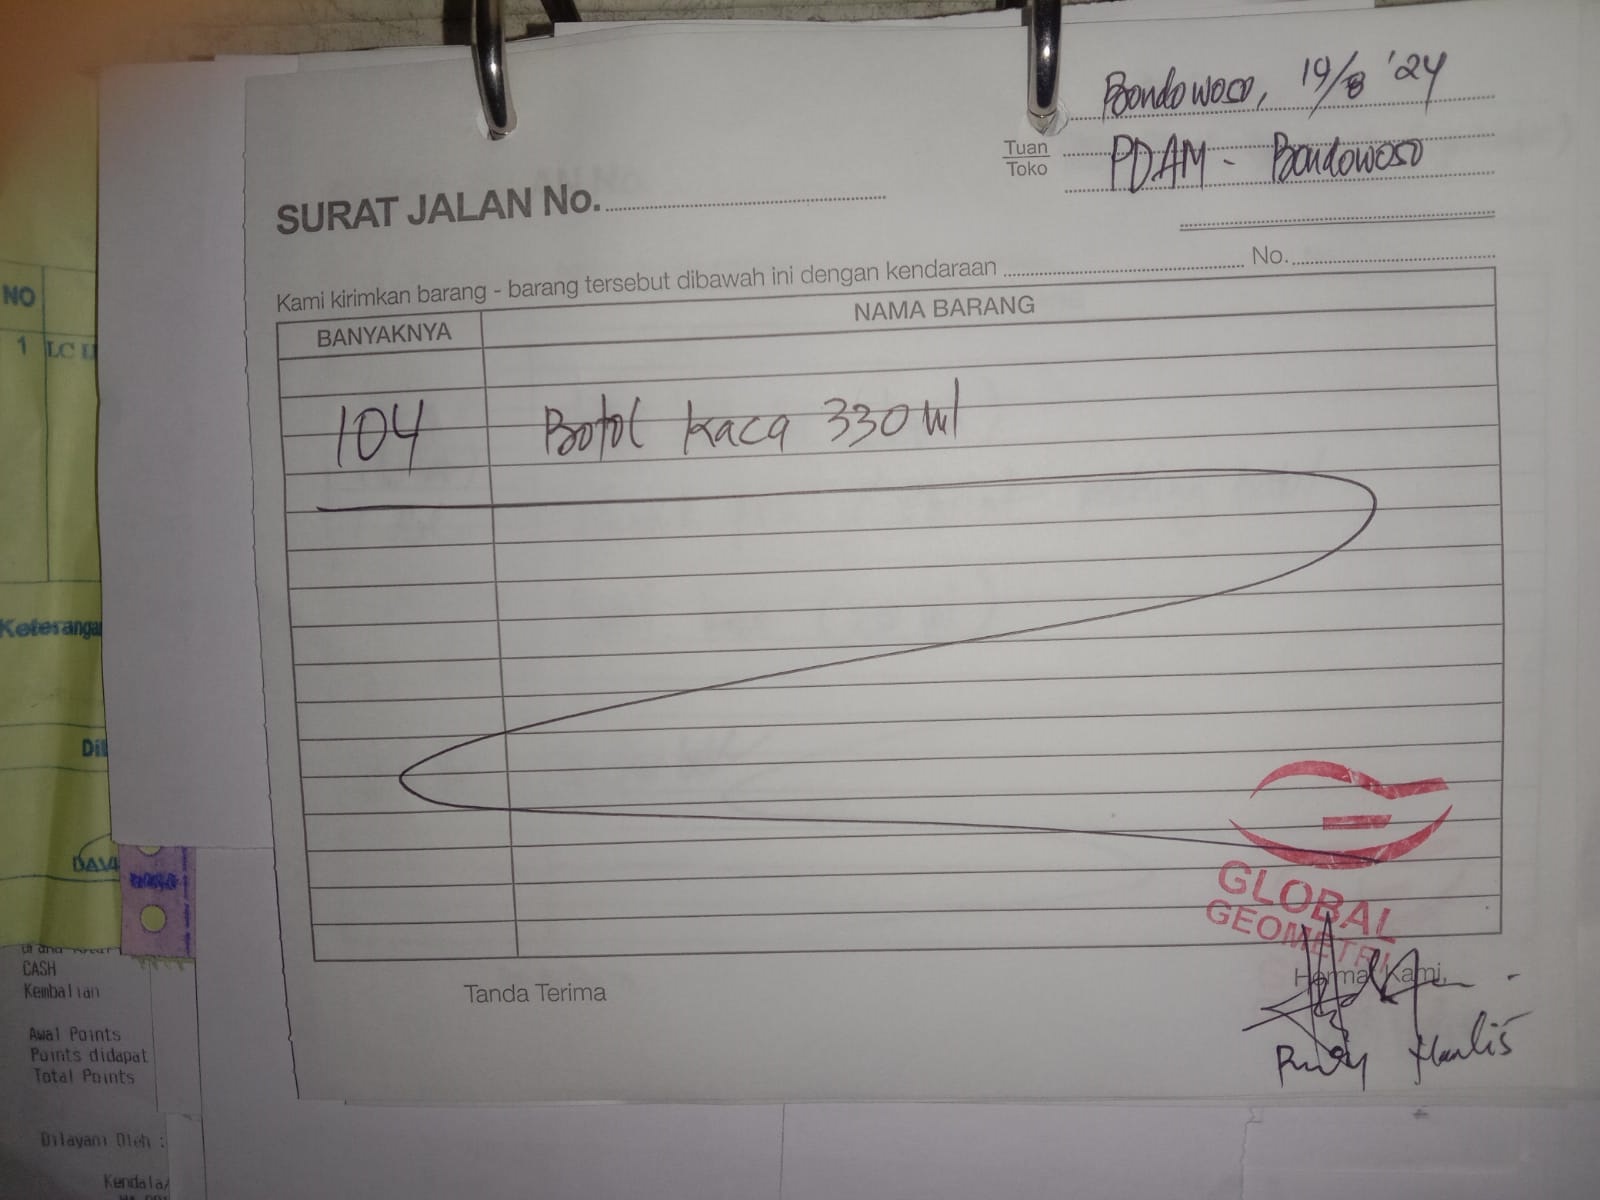 Bondowoso, 19/8 '24
Tuan
Toko
PDAM - Bondowoso
SURAT JALAN No.
Kami kirimkan barang - barang tersebut dibawah ini dengan kendaraan No.
BANYAKNYA NAMA BARANG
104 Botol kaca 330 ml
GLOBAL
GEOMETRI
Tanda Terima Hormat Kami,
Rudy
NO
1 LC
Keterangan
CASH
Kembalian
Awal Points
Points didapat
Total Points
Dilayani Oleh :
Kendala/